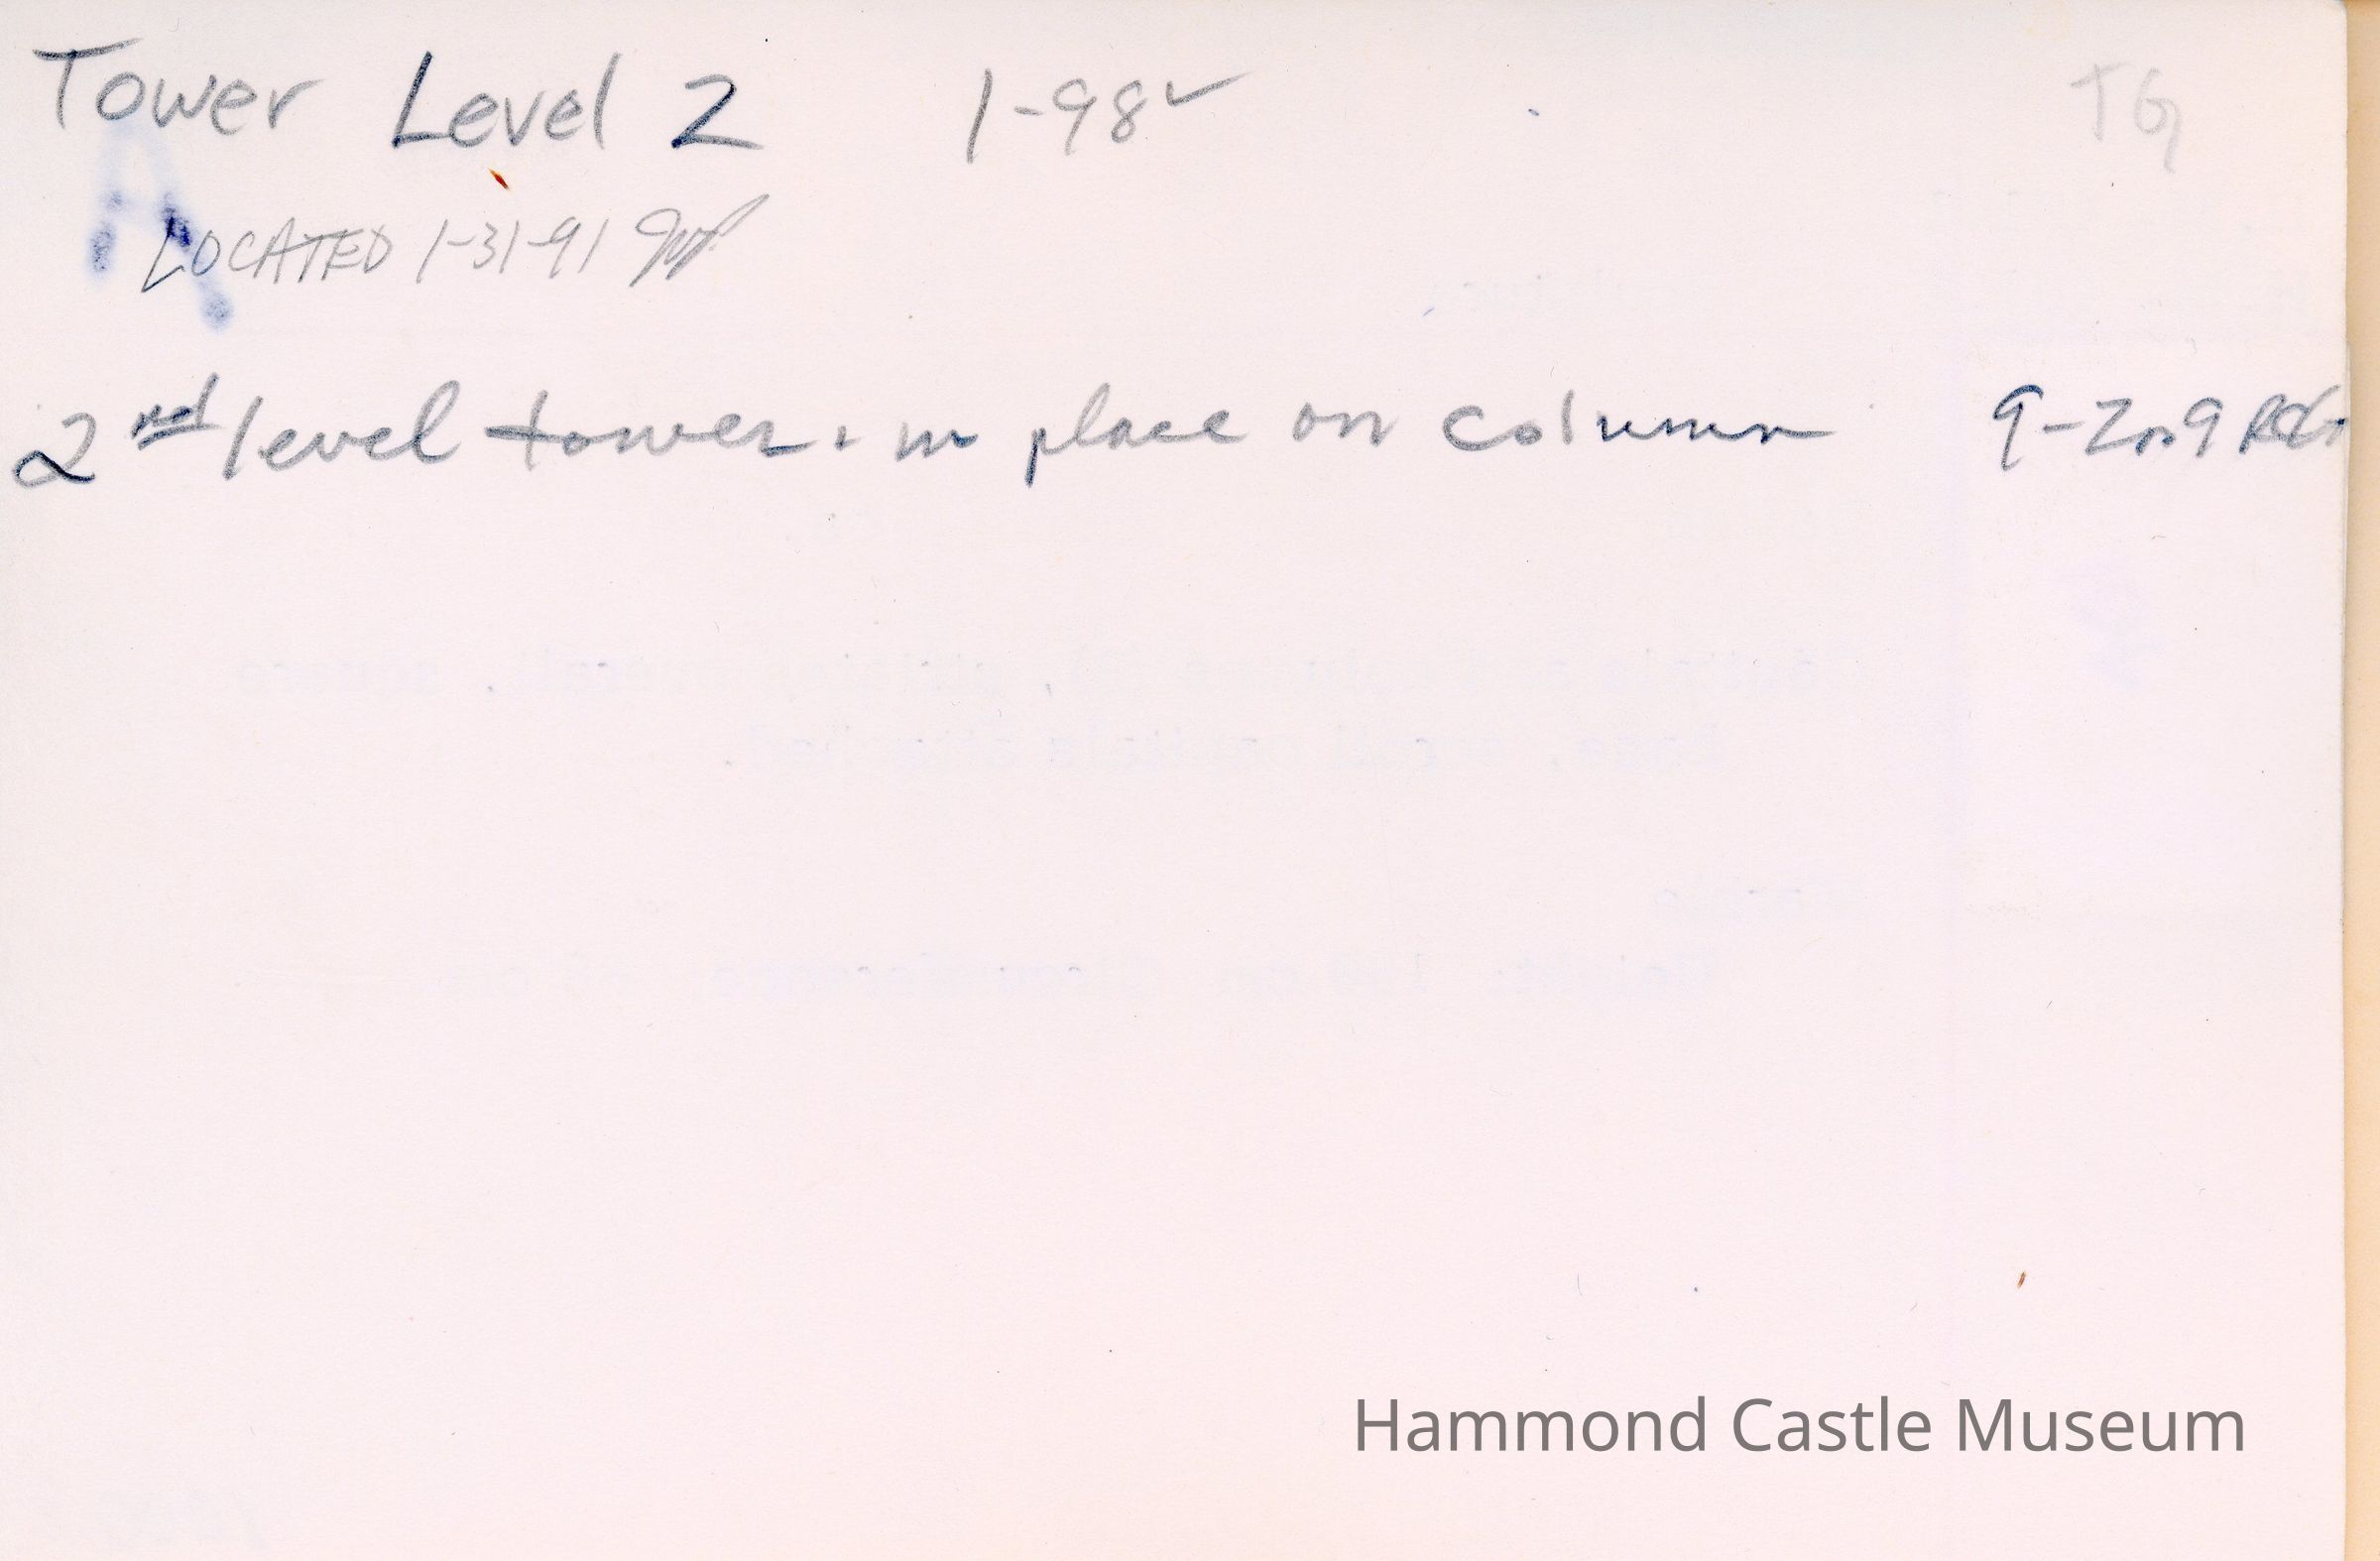 Tower Level 2 1-98✓ TG
A
LOCATED 1-31-91
2nd level tower. in place on column 9-2009
Hammond Castle Museum